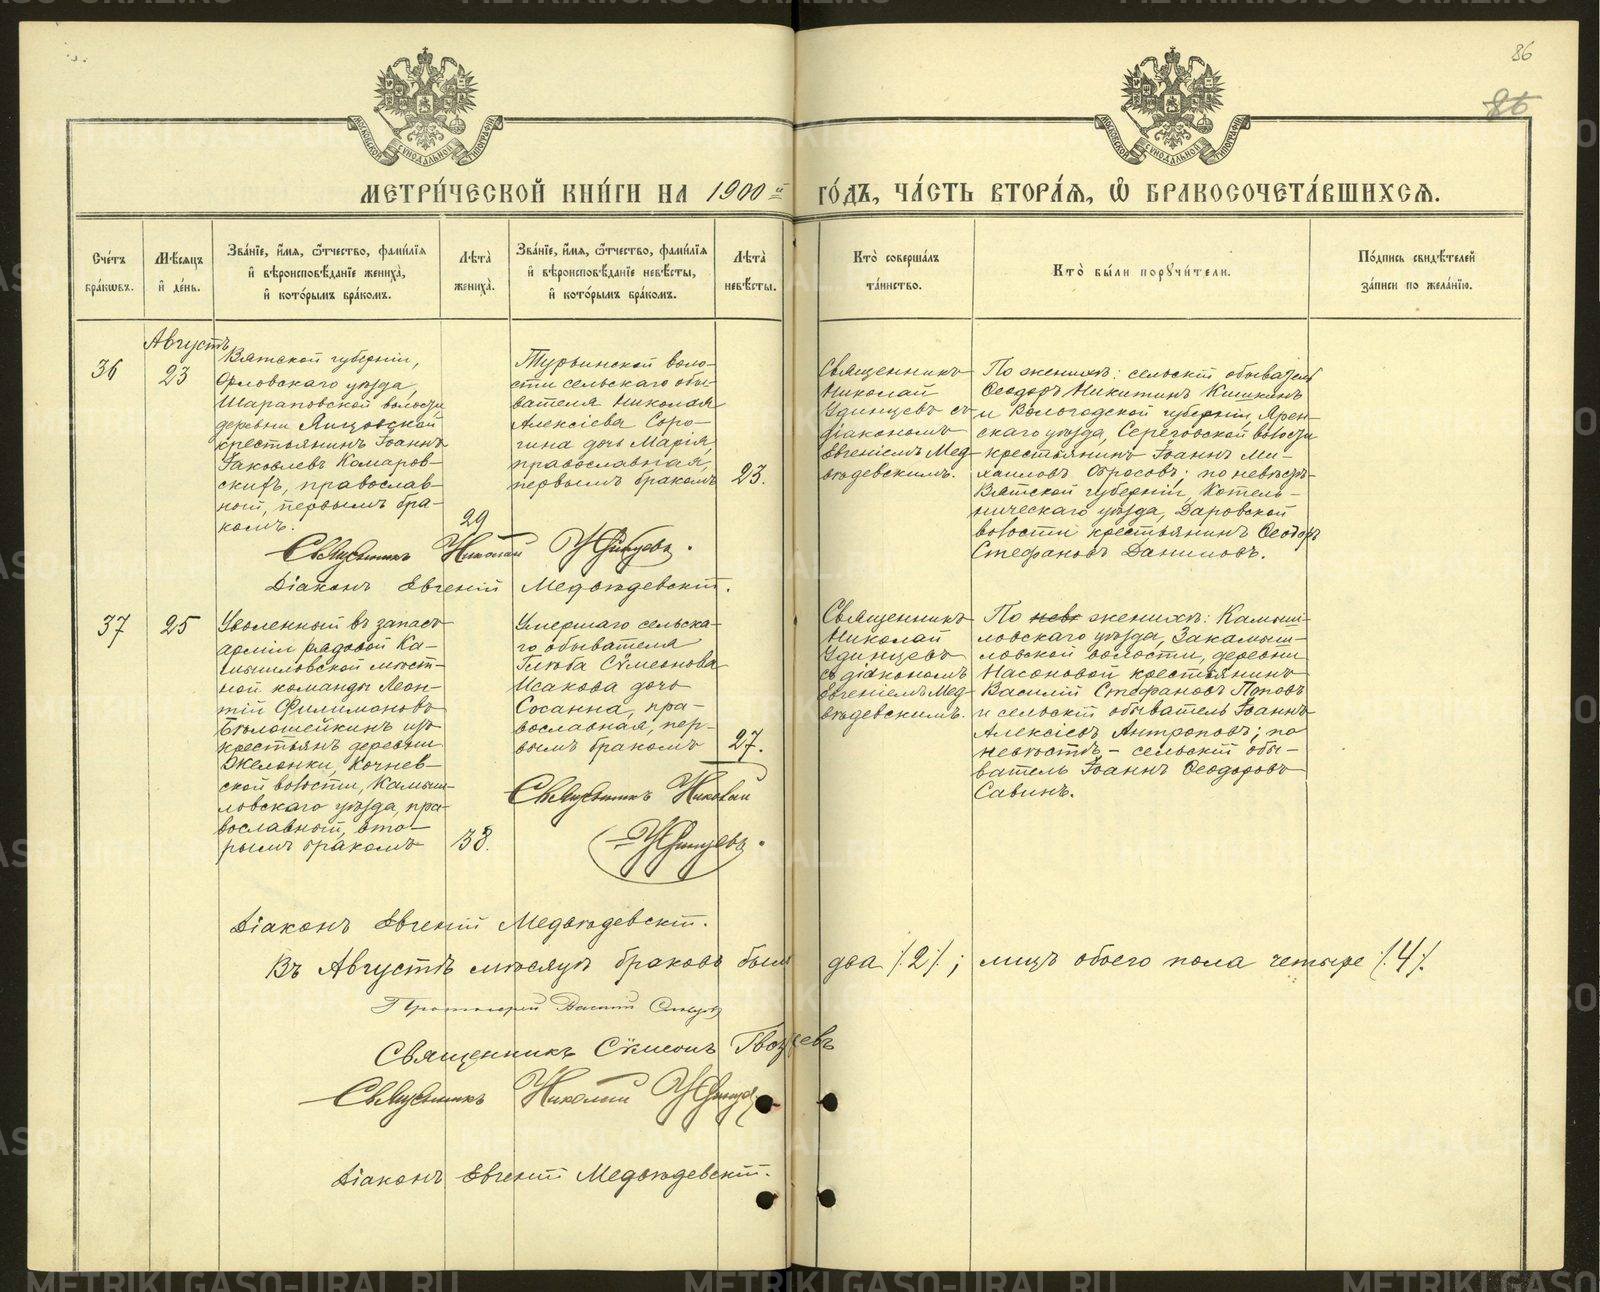 86
86
МОСКОВСКОЙ СѴНОДАЛЬНОЙ ТИПОГРАФІИ
МОСКОВСКОЙ СѴНОДАЛЬНОЙ ТИПОГРАФІИ
МЕТРИ́ЧЕСКОЙ КНИ́ГИ НА 1900й ГО́ДЪ, ЧА́СТЬ ВТОРА́Я, Ѽ БРАКОСОЧЕТА́ВШИХСЯ.
Сче́тъ бра́кѡвъ.
Мѣ́сяцъ и҆ де́нь.
Зва́нїе, и҆́мя, ѻ҆́тчество, фами́лїя
и҆ вѣроисповѣ́данїе жениха̀,
и҆ кото́рымъ бра́комъ.
Лѣта̀ жениха̀.
Зва́нїе, и҆́мя, ѻ҆́тчество, фами́лїя
и҆ вѣроисповѣ́данїе невѣ́сты,
и҆ кото́рымъ бра́комъ.
Лѣта̀ невѣ́сты.
Кто̀ соверша́лъ та́инство.
Кто̀ бы́ли порꙋчи́тели.
По́дпись свидѣ́телей за́писи по жела́нїю.
36
Августъ
23
Вятской губерніи,
Орловскаго уѣзда,
Шараповской волости,
деревни
крестьянинъ Іоаннъ
Іаковлевъ Комаров-
скихъ, православ-
ный, первымъ бра-
комъ.
29
Турьинской воло-
сти сельскаго обы-
вателя Николая
Алексіева Соро-
гина дочь Марія,
православная,
первымъ бракомъ
23.
Священникъ
Николай
Удинцевъ съ
діакономъ
Евгеніемъ Мед-
вѣдевскимъ.
По женихѣ: сельскій обыватель
Ѳеодоръ Никитинъ Кишкинъ
и Вологодской губерніи, Ярен-
скаго уѣзда, Сереговской волости
крестьянинъ Іоаннъ Ми-
хаиловъ Обросовъ; по невѣстѣ-
Вятской губерніи, Котель-
ническаго уѣзда, Даровской
волости крестьянинъ Ѳеодоръ
Стефановъ Даниловъ.
Священникъ Николай Удинцевъ.
Діаконъ Евгеній Медвѣдевскій.
37
25
Уволенный въ запасъ
арміи рядовой Ка-
мышловской мѣст-
ной команды Леон-
тій Филимоновъ
Бѣлошейкинъ изъ
крестьянъ деревни
Желонки, Кочнев-
ской волости, Камыш-
ловскаго уѣзда, пра-
вославный, вто-
рымъ бракомъ
38.
Умершаго сельска-
го обывателя
Глѣба Сѵмеонова
Исакова дочь
Сосанна, пра-
вославная, пер-
вымъ бракомъ
27.
Священникъ
Николай
Удинцевъ
съ діакономъ
Евгеніемъ Мед-
вѣдевскимъ.
По невѣ женихѣ: Камыш-
ловскаго уѣзда, Закамыш-
ловской волости, деревни
Насоновой крестьянинъ
Василій Стефановъ Поповъ
и сельскій обыватель Іоаннъ
Алексіевъ Антроповъ; по
невѣстѣ - сельскій обы-
ватель Іоаннъ Ѳеодоровъ
Савинъ.
Священникъ Николай
Удинцевъ.
Діаконъ Евгеній Медвѣдевскій.
Въ Августѣ мѣсяцѣ браковъ было два /.2/.; лицъ обоего пола четыре /.4/.
Протоіерей Василій
Священникъ Сѵмеонъ
Священникъ Николай Удинцевъ
Діаконъ Евгеній Медвѣдевскій.
METRIKI.GASO-URAL.RU